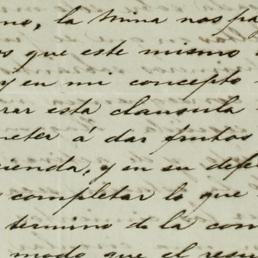 no, la mina nos pa
os que este mismo
y en mi concepto
rar esta clausula
meter á dar frutos
cienda, y en su defe
completar lo que
termino de la con
modo que el resu